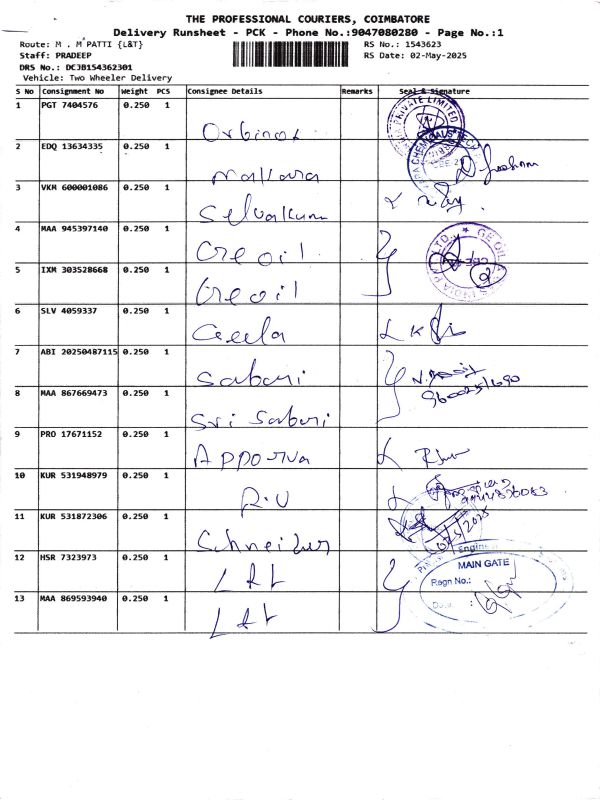 THE PROFESSIONAL COURIERS, COIMBATORE
Delivery Runsheet - PCK - Phone No.:9047080280 - Page No.:1
Route: M . M PATTI {L&T}
RS No.: 1543623
Staff: PRADEEP
RS Date: 02-May-2025
DRS No.: DCJB154362301
Vehicle: Two Wheeler Delivery
S No Consignment No Weight PCS Consignee Details Remarks Seal & Signature
1 PGT 7404576 0.250 1
PRIVATE LIMITED
2 EDQ 13634335 0.250 1 Makara
CHEMICALS
3 VKM 600001086 0.250 1 Selvakum
4 MAA 945397140 0.250 1 Ge oil
GE OIL INDIA PVT LTD
5 IXM 303528668 0.250 1 Ge oil
6 SLV 4059337 0.250 1 Geela
7 ABI 20250487115 0.250 1 Sabari
8 MAA 867669473 0.250 1 Sri Sabari
9 PRO 17671152 0.250 1 Apporva
10 KUR 531948979 0.250 1 R.V
11 KUR 531872306 0.250 1 Schneider
12 HSR 7323973 0.250 1 L&t
Engine
MAIN GATE
Regn No.:
Date :
13 MAA 869593940 0.250 1 L&t